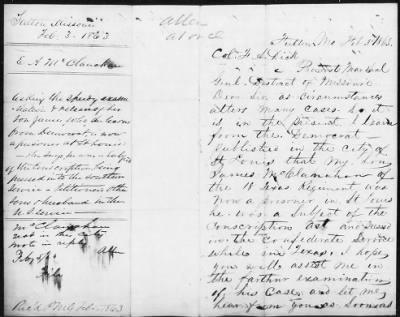 Fulton Missouri
Feb. 3. 1863
E. A. McClanahan
Asking the speedy exam
ination & release of her
son James, who she learns
from Democrat, is now
a prisoner at St Louis
of the conscription
pressed into the southern
service
sons & husband in the
U.S. service
McClanahan
not in the city
note in reply
Allen
Feby
File
Rec'd Feb 1863
Allen
at once
Fulton, Mo Feb 3rd 1863.
Col. F. A. Dick
Provost Marshal
Genl. District of Missouri
Dear Sir as circumstances
alters many cases. So it
is in the present. I learn
from the Democrat
published in the city of
St Louis that my son
James McClanahan of
the 18 Texas Regiment was
now a prisoner in St Louis
he was a subject of the
Conscription act and
in the Confederate Service
while in Texas. I hope
you will assist me in
the farther examination
of his case, and let me
hear from you as soon as